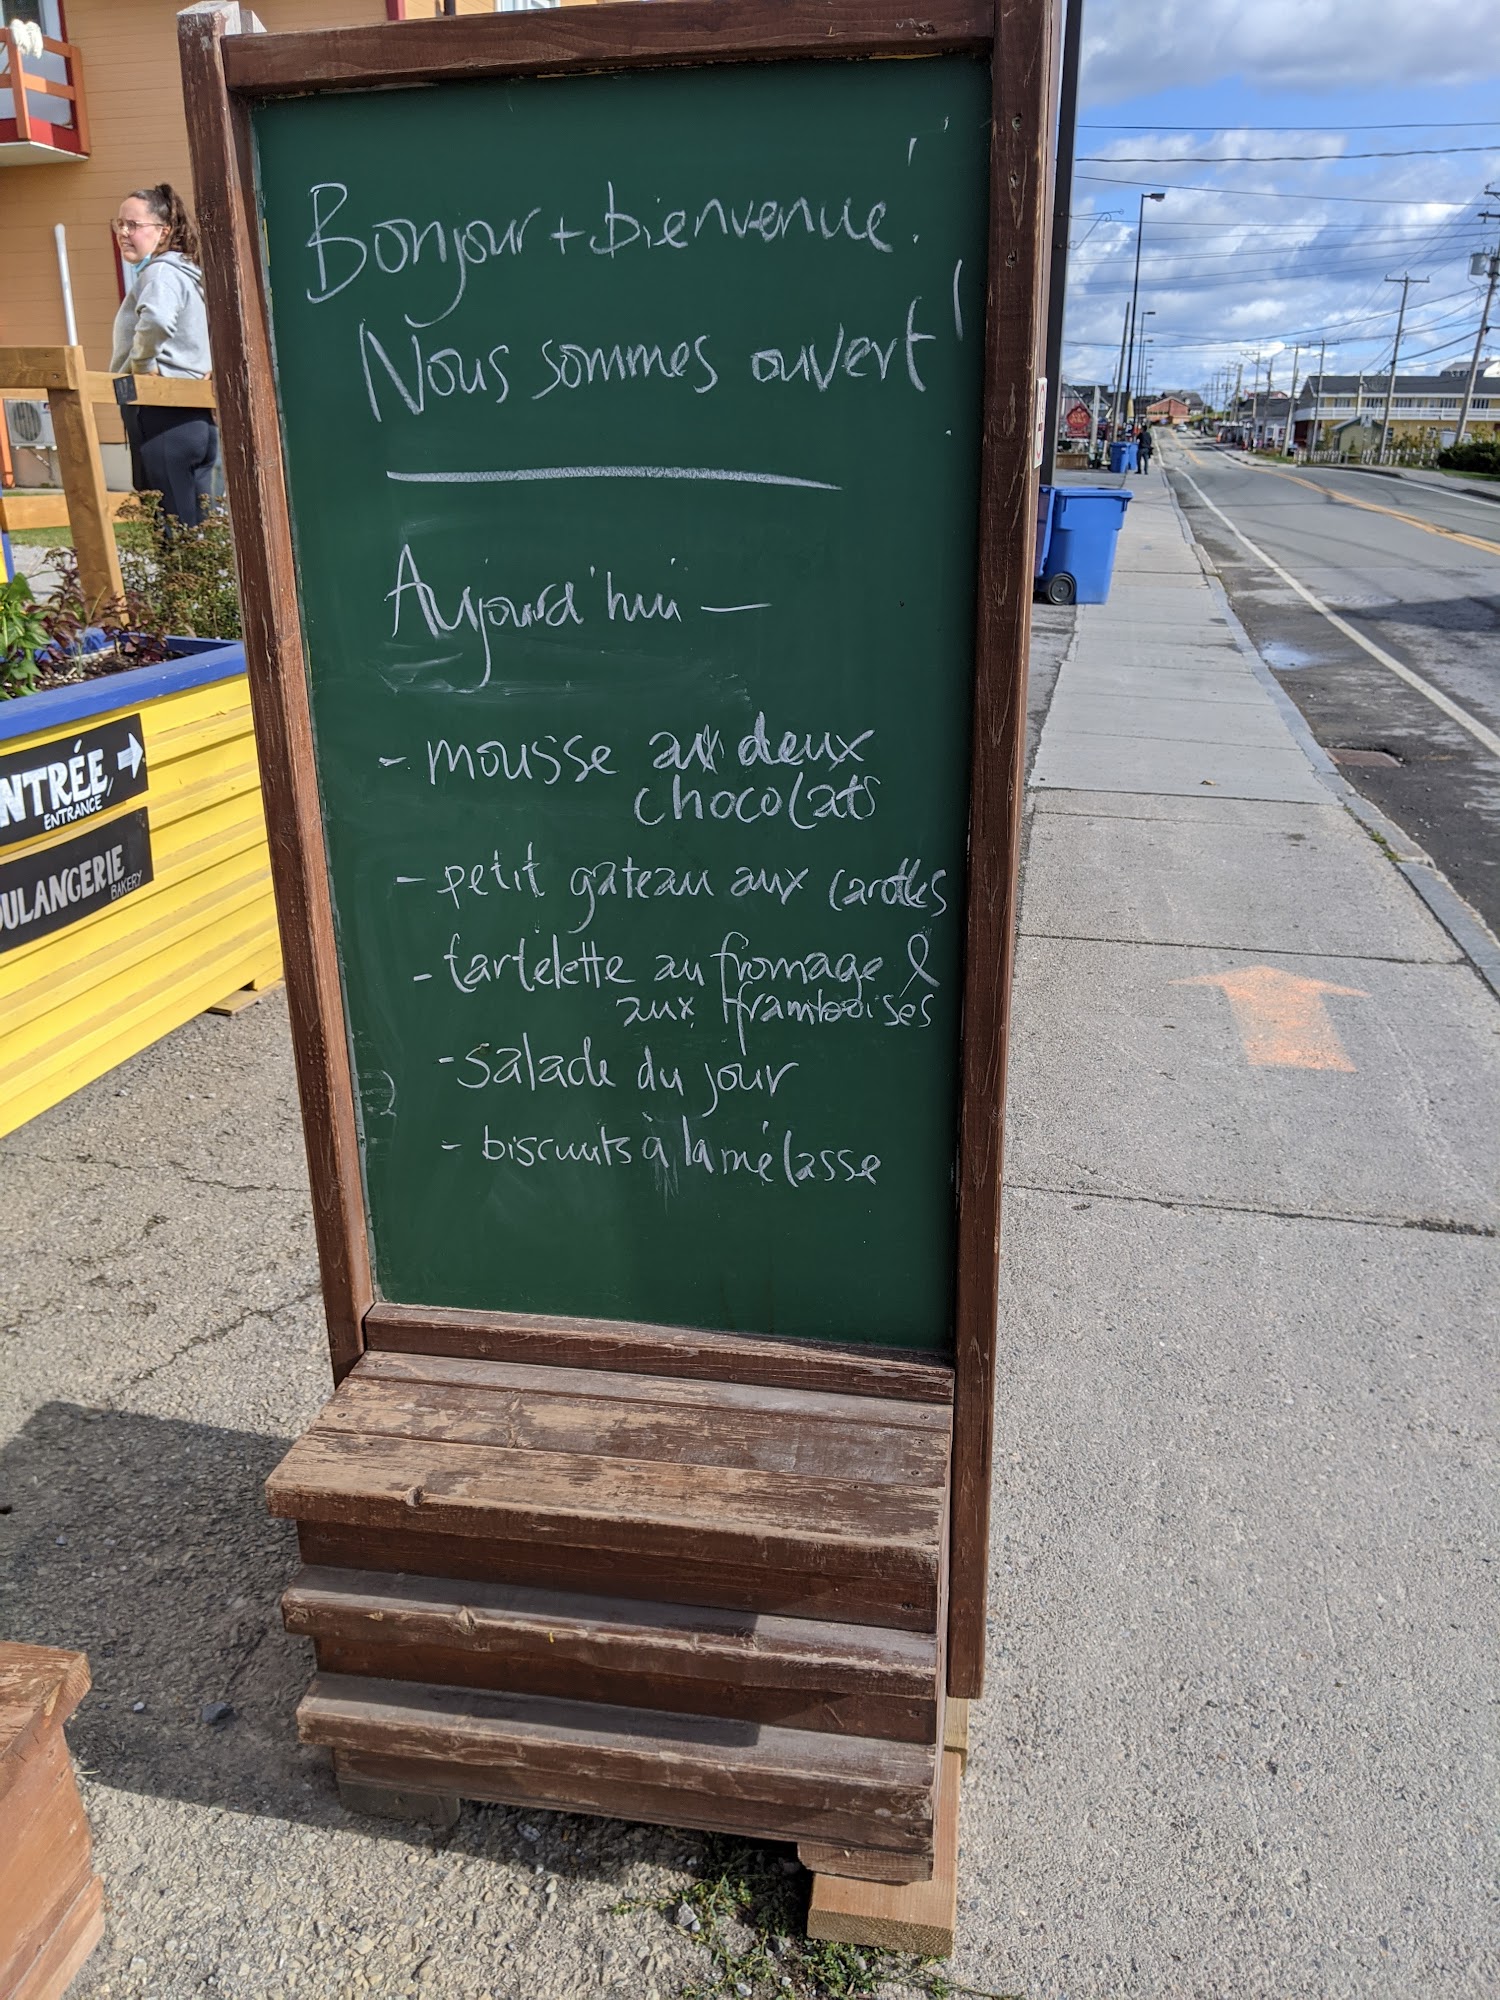 Bonjour + bienvenue!
Nous sommes ouvert!
Aujourd'hui —
- mousse aux deux
chocolats
- petit gateau aux carottes
- tartelette au fromage &
aux framboises
- salade du jour
- biscuits à la mélasse
NTRÉE
ENTRANCE
OULANGERIE
BAKERY